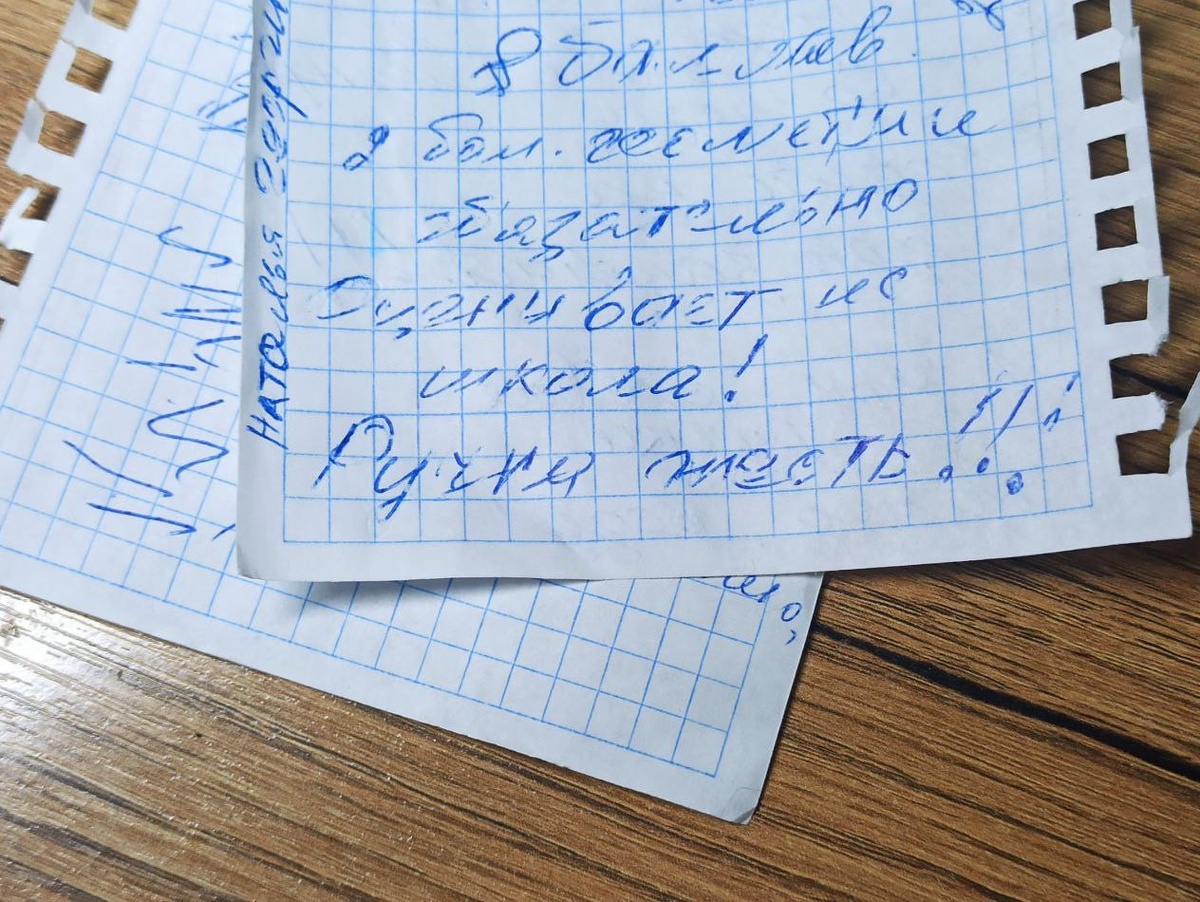 8 баллов.
2 бал. геометрии
обязательно
Оценивает не
школа!
Ручка жесть!!!
Наталья Георги